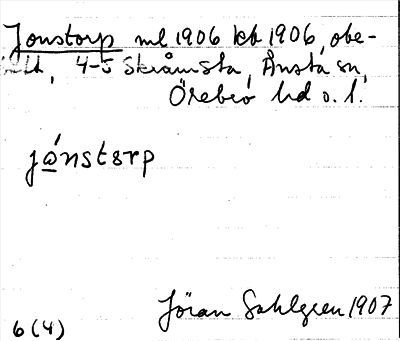 Jonstorp ml 1906 kb 1906, obe-
4-5 Skråmsta, Ånsta sn,
Örebro hd o. l.
jånstorp
Jöran Sahlgren 1907
6 (4)